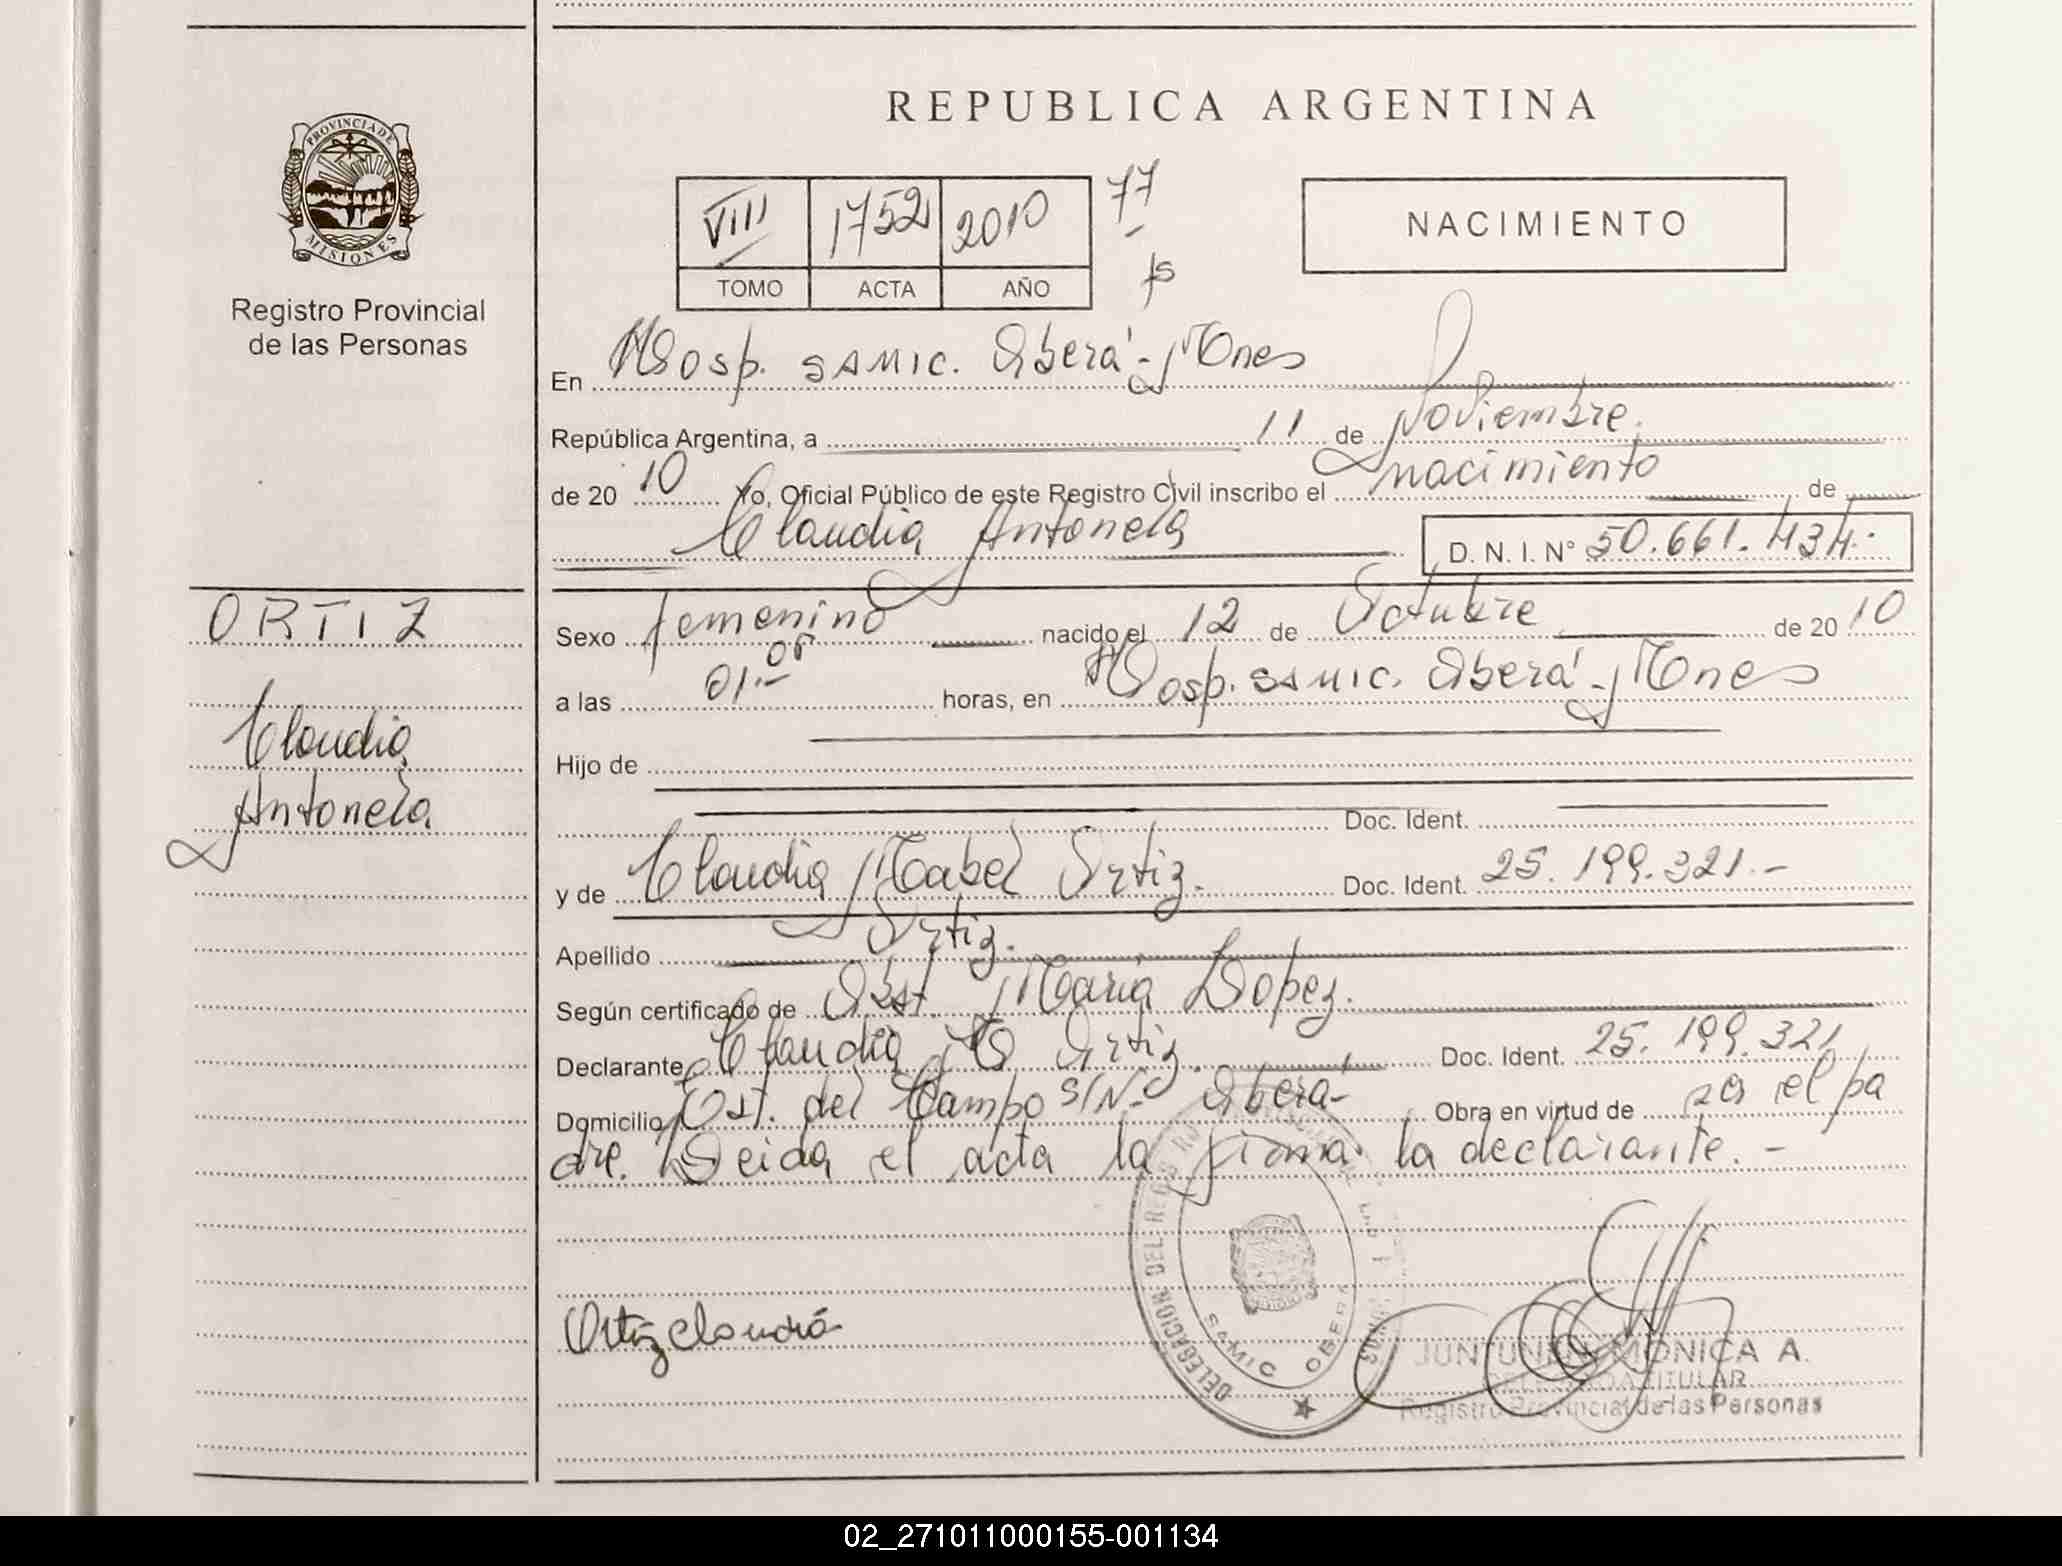 REPUBLICA ARGENTINA
PROVINCIA DE
MISIONES
Registro Provincial
de las Personas
VIII 1752 2010 77
TOMO ACTA AÑO fs
NACIMIENTO
En Hosp. SAMIC. Oberá - Mnes
República Argentina, a 11 de Noviembre.
de 20 10 Yo, Oficial Público de este Registro Civil inscribo el nacimiento de
Claudia Antonela D. N. I. N° 50.661.434.-
ORTIZ
Claudia
Antonela
Sexo femenino nacido el 12 de Octubre de 20 10
a las 01.-05 horas, en Hosp. SAMIC. Oberá - Mnes
Hijo de
Doc. Ident.
y de Claudia Mabel Ortiz. Doc. Ident. 25.199.321.-
Apellido Ortiz.
Según certificado de Obst. Maria Lopez.
Declarante Claudia M Ortiz. Doc. Ident. 25.199.321
Domicilio Ost. del Campo S/N° Oberá- Obra en virtud de no el pa
dre. Leida el acta la firma la declarante. -
Ortiz Claudia
DELEGACION DEL
SAMIC OBERA
MONICA A.
TITULAR
Registro Provincial de las Personas
02_271011000155-001134